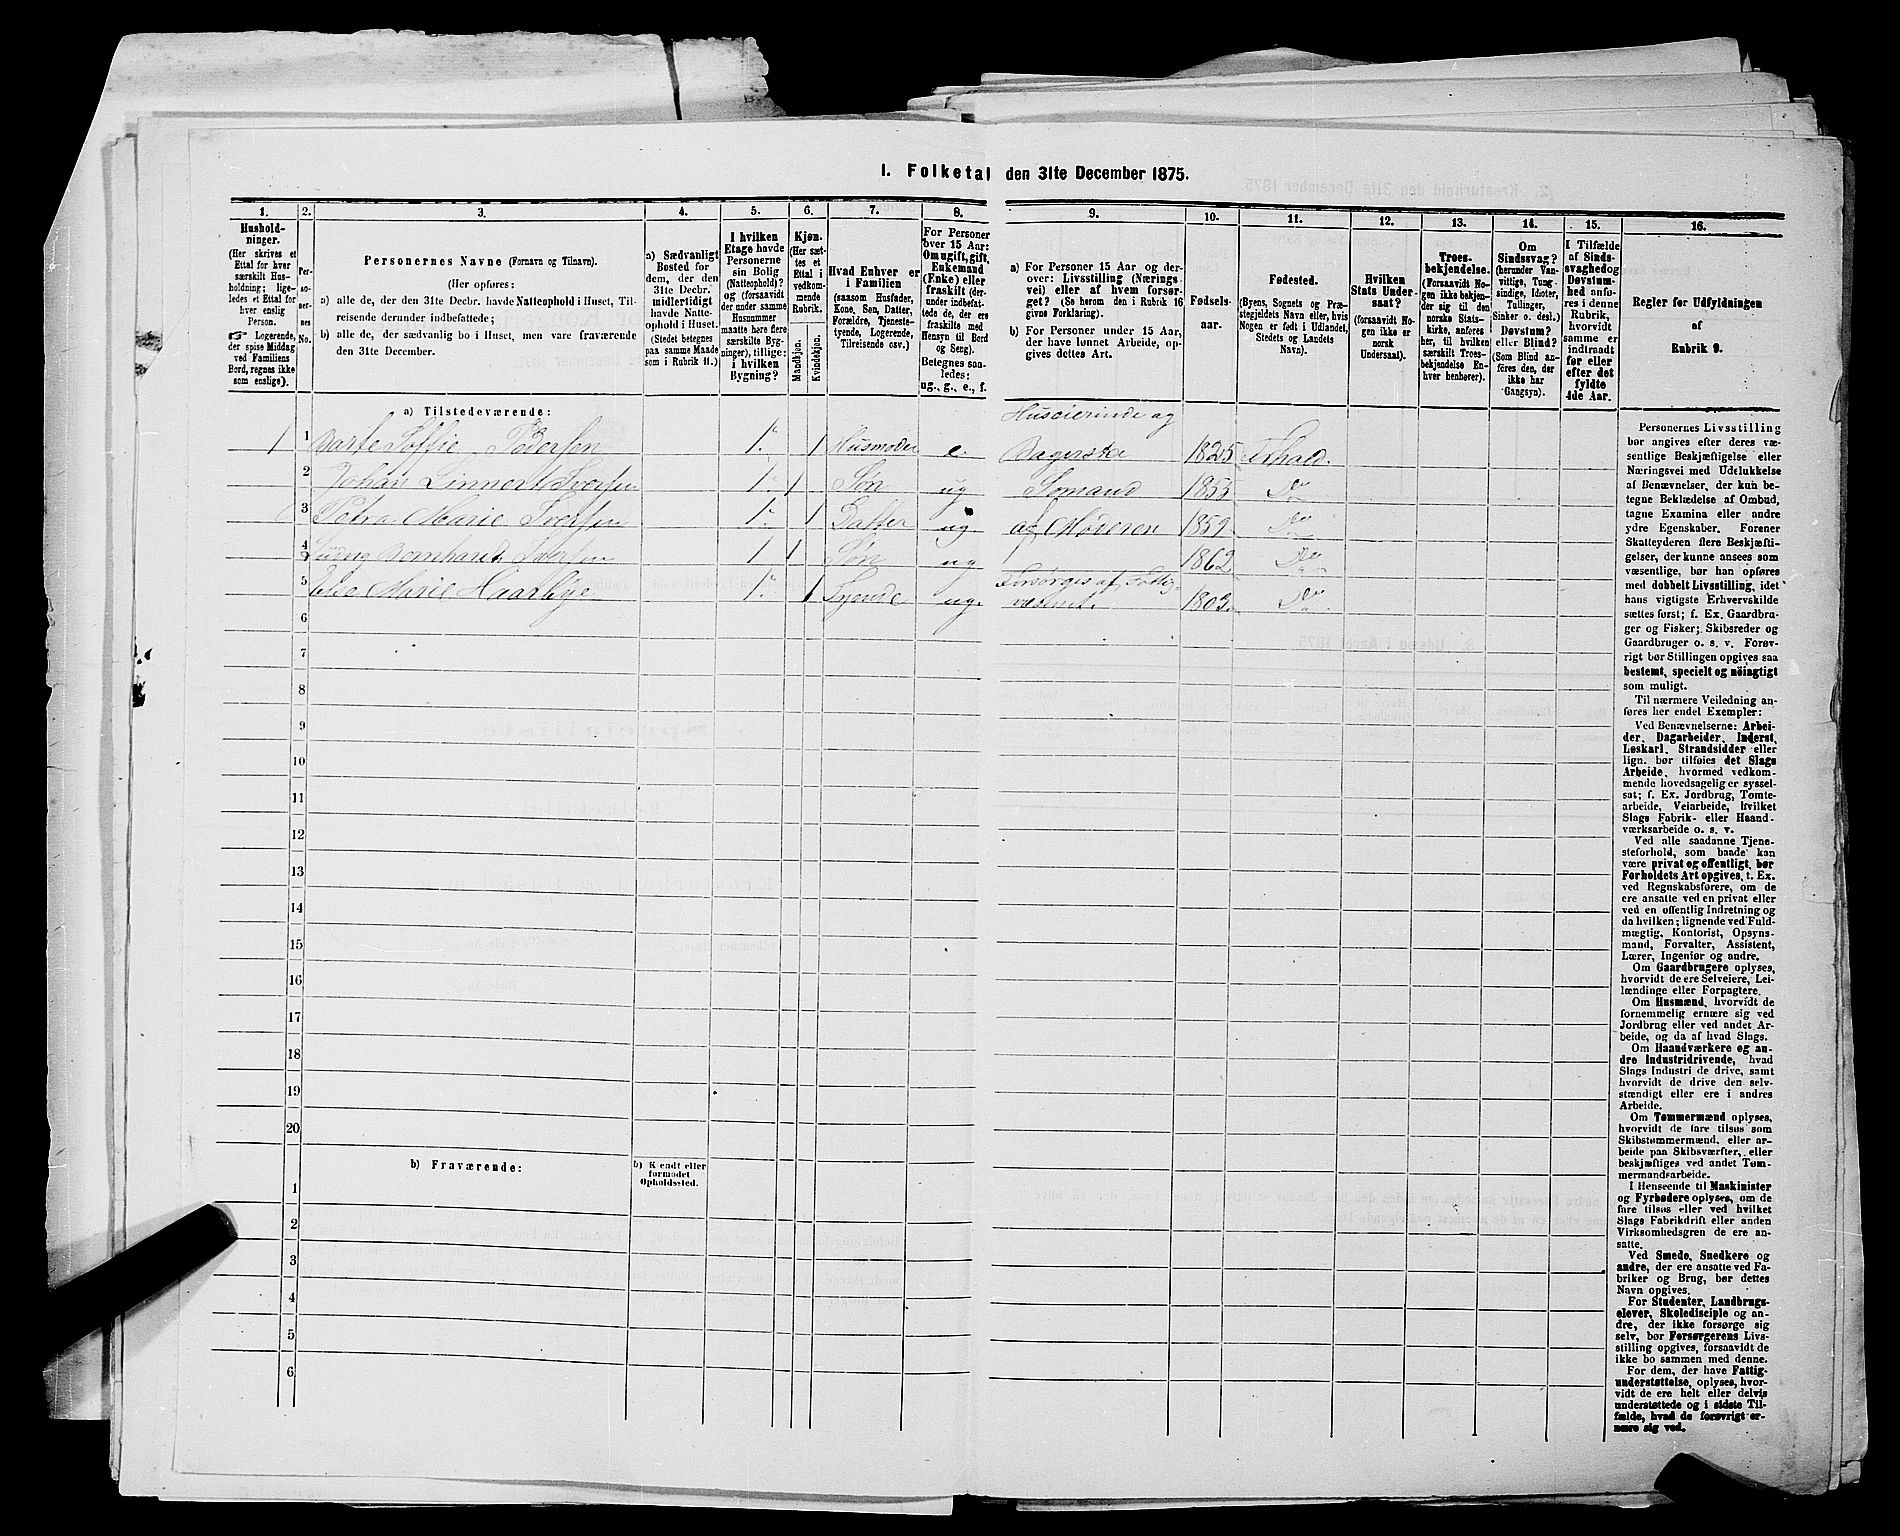 1. Folketal den 31te December 1875.
1. 2. 3. 4. 5. 6. 7. 8. 9. 10. 11. 12. 13. 14. 15. 16.
Hushold-
ninger.
(Her skrives et
Ettal for hver
særskilt Hus-
holdning; lige-
ledes et Ettal for
hver enslig
Person.
☞ Logerende,
der spise Middag
ved Familiens
Bord, regnes ikke
som enslige).
Per-
so-
ner-
nes
No.
Personernes Navne (Fornavn og Tilnavn).
(Her opføres:
a) alle de, der den 31te Decbr. havde Natteophold i Huset, Til-
reisende derunder indbefattede;
b) alle de, der sædvanlig bo i Huset, men vare fraværende
den 31te December.
a) Sædvanligt
Bosted for
dem, der den
31te Decbr.
midlertidigt
havde Natte-
ophold i Huset.
(Stedet betegnes
paa samme Maade
som i Rubrik 11.)
I hvilken
Etage havde
Personerne
sin Bolig
(Natteophold)?
og (forsaavidt
der under samme
Husnummer
maatte høre flere
særskilte Byg-
ninger), tillige:
i hvilken
Bygning?
Kjøn.
(Her sæt-
tes et
Ettal i
vedkom-
mende
Rubrik.
Mandkjøn.
Kvindekjøn.
Hvad Enhver er
i Familien
(saasom Husfader,
Kone, Søn, Datter,
Forældre, Tjeneste-
tyende, Logerende,
Tilreisende osv.)
For Personer
over 15 Aar:
Om ugift, gift,
Enkemand
(Enke) eller
fraskilt (der-
under indbefat-
tede de, der ere
fraskilte med
Hensyn til Bord
og Seng).
Betegnes saa-
ledes:
ug., g., e., f.
a) For Personer 15 Aar og der-
over: Livsstilling (Nærings-
vei) eller af hvem forsør-
get? (Se herom den i Rubrik 16
givne Forklaring).
b) For Personer under 15 Aar,
der have lønnet Arbeide, op-
gives dettes Art.
Fødsels-
aar.
Fødested.
(Byens, Sognets og Præ-
stegjeldets Navn eller, hvis
Nogen er født i Udlandet,
Stedets og Landets
Navn).
Hvilken
Stats Under-
saat?
(forsaavidt No-
gen ikke er
norsk
Undersaat).
Troes-
bekjendelse.
(Forsaavidt No-
gen ikke bekjen-
der sig til den
norske Stats-
kirke, anføres
her, til hvilken
særskilt Troes-
bekjendelse En-
hver henhører).
Om
Sindssvag?
(herunder Van-
vittige, Tung-
sindige, Idioter,
Tullinger,
Sinker o. desl.)
Døvstum?
eller Blind?
(Som Blind an-
føres den, der
ikke har
Gangsyn).
I Tilfælde
af Sinds-
svaghed og
Døvstum-
hed anfø-
res i denne
Rubrik,
hvorvidt
samme er
indtraadt
før eller
efter det
fyldte
4de Aar.
Regler for Udfyldningen
af
Rubrik 9.
a) Tilstedeværende:
Huseierinde og
1 1 Soffie Pedersen 1. 1 Husmoder e. Bagerske 1825 Frhald.
2 Johan Linnert Iversen 1. 1 Søn ug Sømand 1855 Do
3 Petra Marie Iversen 1. 1 Datter ug af Moderen 1859 Do
4 Ludvig Bernhard Iversen 1 1 Søn ug 1862 Do
Forsørges af Fattig-
5 Else Marie Haarbye 1. 1 Tyende ug. væsenet. 1803. Do
6
7
8
9
10
11
12
13
14
15
16
17
18
19
20
b) Fraværende:
b) Kjendt eller
formodet
Opholdssted.
1
2
3
4
5
6
Personernes Livsstilling
bør angives efter deres væ-
sentlige Beskjæftigelse eller
Næringsvei med Udelukkelse
af Benævnelser, der kun be-
tegne Beklædelse af Ombud,
tagne Examina eller andre
ydre Egenskaber. Forener
Skatteyderen flere Beskjæfti-
gelser, der kunne ansees som
væsentlige, bør han opføres
med dobbelt Livsstilling, idet
hans vigtigste Erhvervskilde
sættes først; f. Ex. Gaardbru-
ger og Fisker; Skibsreder og
Gaardbruger o. s. v. Forøv-
rigt bør Stillingen opgives saa
bestemt, specielt og nöiagtigt
som muligt.
Til nærmere Veiledning an-
føres her endel Exempler:
Ved Benævnelserne: Arbei-
der, Dagarbeider, Inderst,
Løskarl, Strandsidder eller
lign. bør tilføies det Slags
Arbeide, hvormed vedkom-
mende hovedsagelig er syssel-
sat; f. Ex. Jordbrug, Tomte-
arbeide, Veiarbeide, hvilket
Slags Fabrik- eller Haand-
værksarbeide o. s. v.
Ved alle saadanne Tjene-
steforhold, som baade kan
være privat og offentligt, bør
Forholdets Art opgives, t. Ex.
ved Regnskabsførere, om de
ere ansatte ved en privat eller
ved en offentlig Indretning og
da hvilken; lignende ved Fuld-
mægtig, Kontorist, Opsyns-
mand, Forvalter, Assistent,
Lærer, Ingeniør og andre.
Om Gaardbrugere oplyses,
hvorvidt de ere Selveiere, Lei-
lændinge eller Forpagtere.
Om Husmænd, hvorvidt de
fornemmelig ernære sig ved
Jordbrug eller ved andet Ar-
beide, og da af hvad Slags.
Om Haandværkere og an-
dre Industridrivende, hvad
Slags Industri de drive, samt
hvorvidt de drive den selv-
stændigt eller ere i andres
Arbeide.
Om Tømmermænd oplyses,
hvorvidt de fare tilsøs som
Skibstømmermænd, eller ar-
beide paa Skibsværfter, eller
beskjæftiges ved andet Tøm-
mermandsarbeide.
I Henseende til Maskinister
og Fyrbødere oplyses, om de
fare tilsøs eller ved hvilket
Slags Fabrikdrift eller anden
Virksomhedsgren de ere an-
satte.
Ved Smede, Snedkere og
andre, der ere ansatte ved Fa-
briker og Brug, bør dettes
Navn opgives.
For Studenter, Landbrugs-
elever, Skoledisciple og an-
dre, der ikke forsørge sig
selv, bør Forsørgerens Livs-
stilling opgives, forsaavidt de
ikke bo sammen med denne.
For dem, der have Fattig-
understøttelse, oplyses, hvor-
vidt de ere helt eller delvis
understøttede og i sidste Til-
fælde, hvad de forøvrigt er-
nære sig ved.